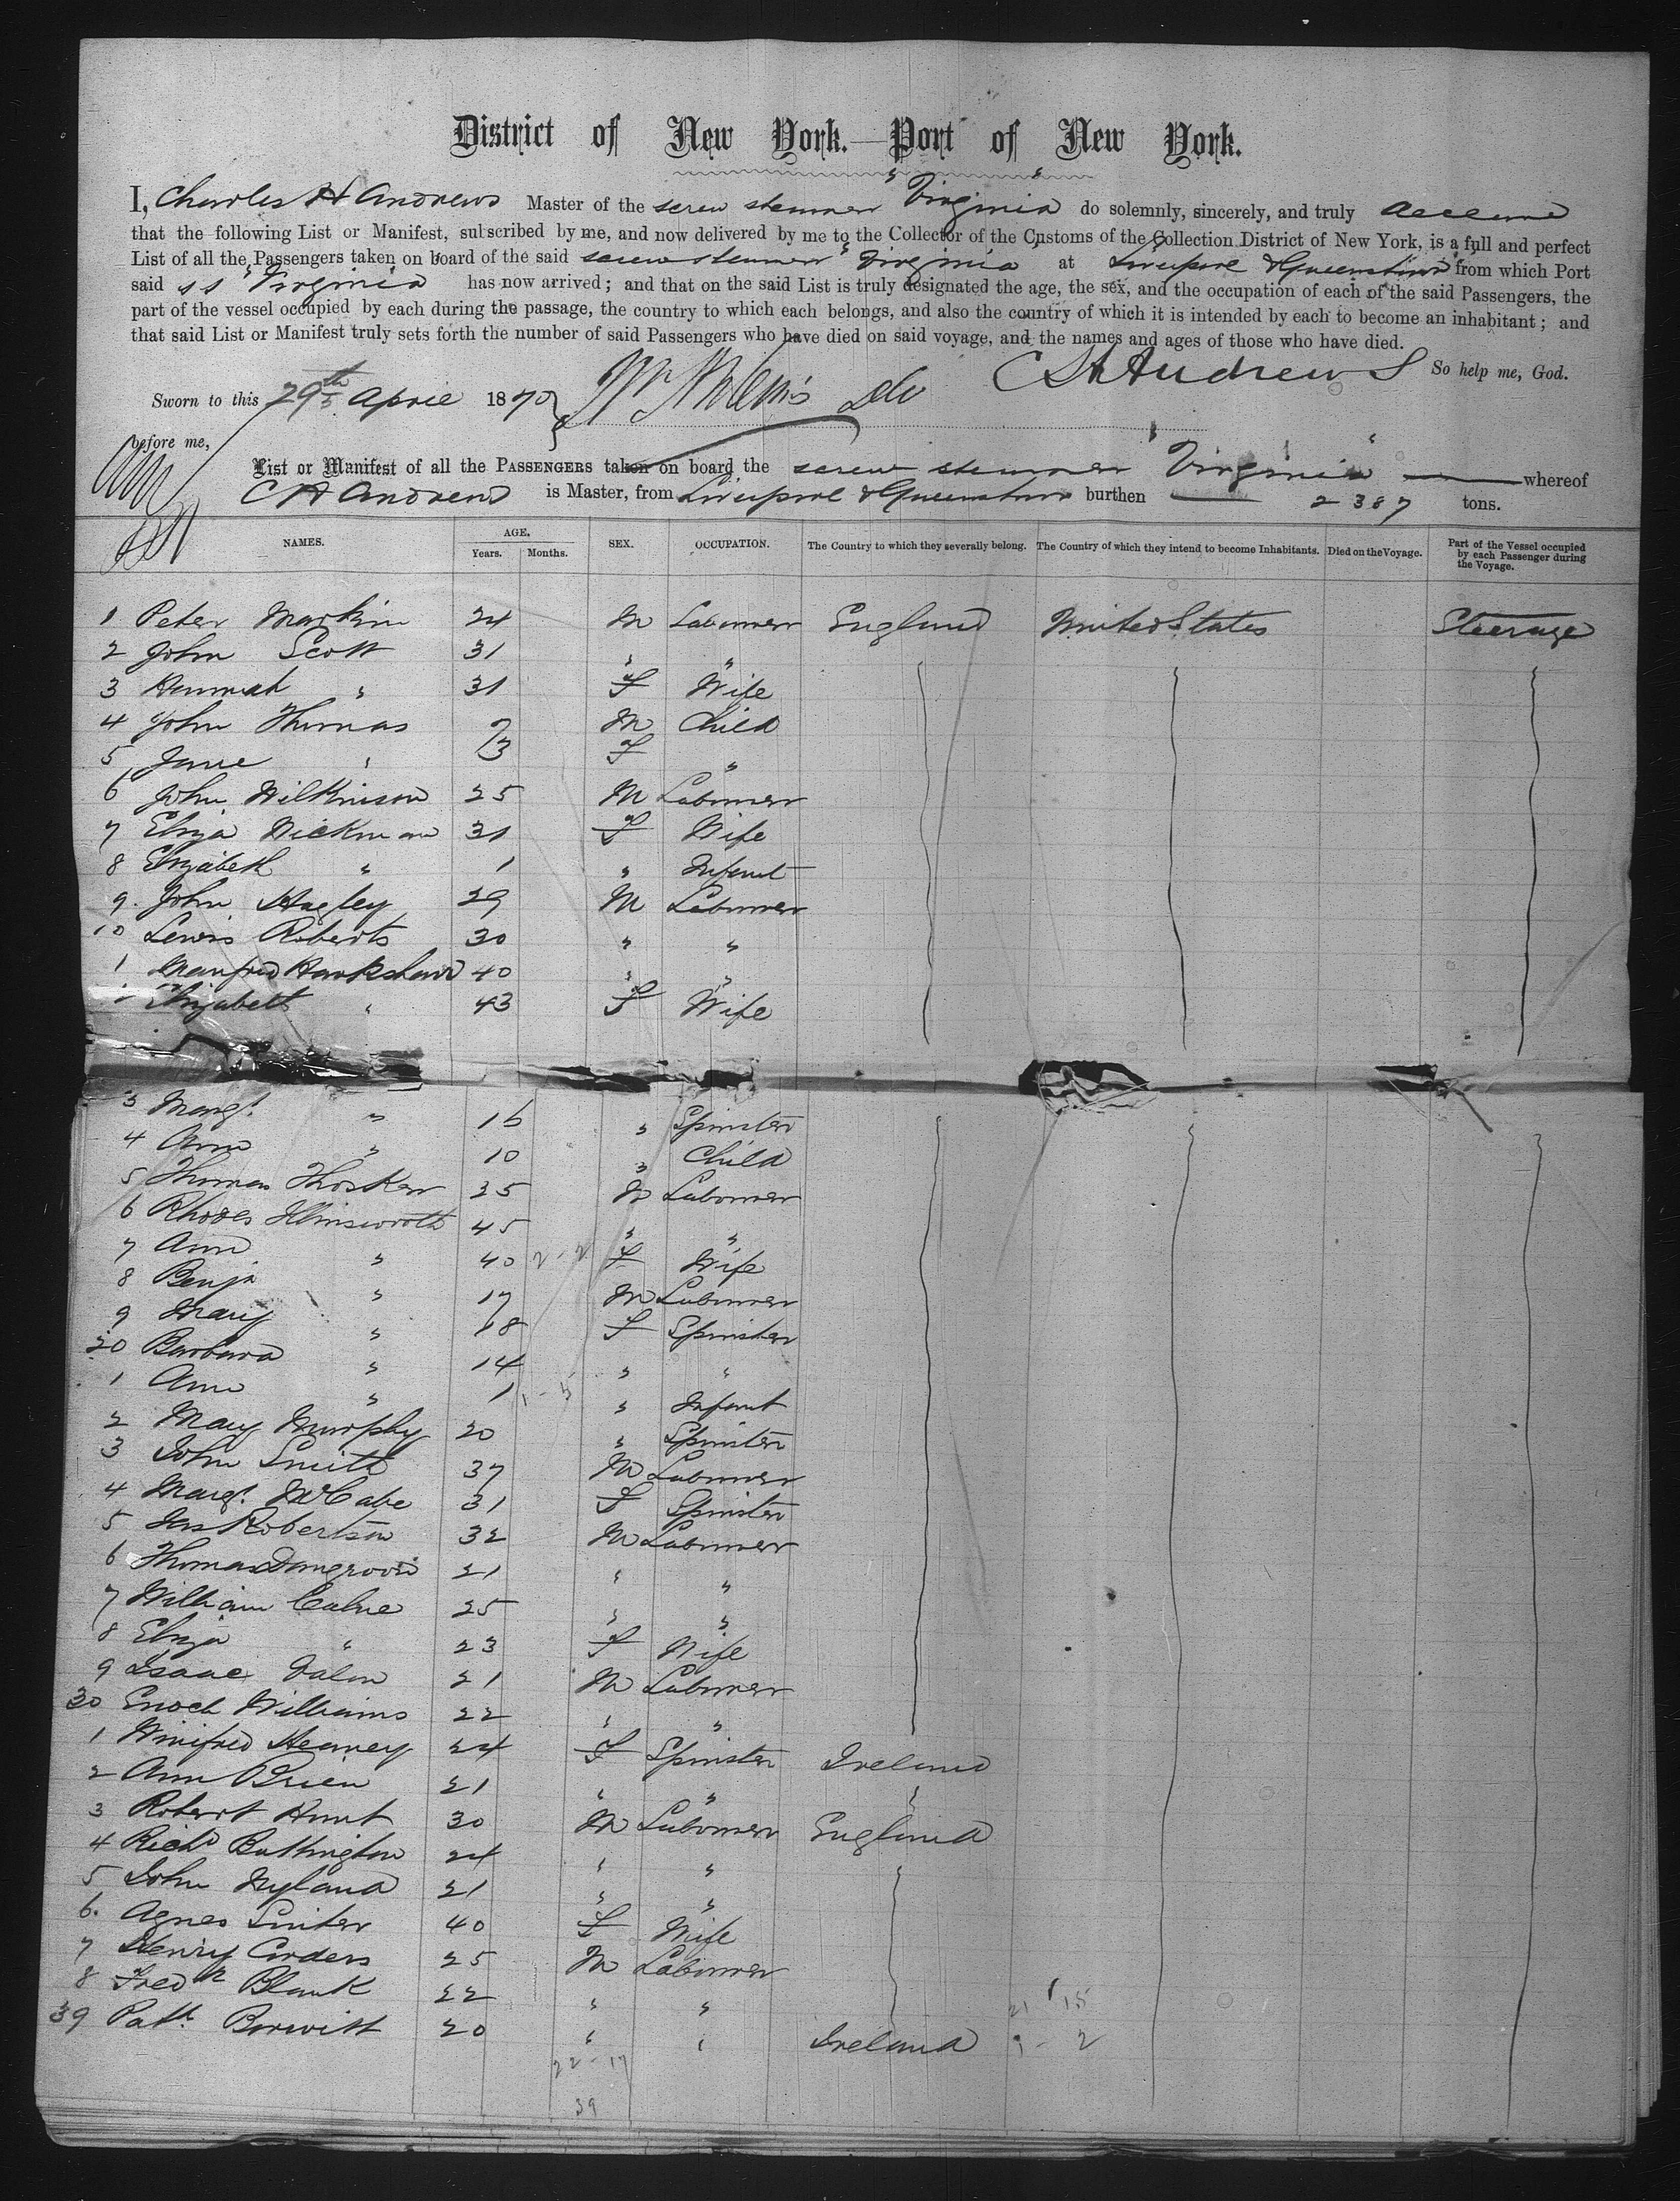 District of New York.—Port of New York.
I, Charles H Andrews Master of the screw steamer "Virginia" do solemnly, sincerely, and truly
that the following List or Manifest, subscribed by me, and now delivered by me to the Collector of the Customs of the Collection District of New York, is a full and perfect
List of all the Passengers taken on board of the said screw steamer "Virginia" at Liverpool & Queenstown from which Port
said ss "Virginia" has now arrived; and that on the said List is truly designated the age, the sex, and the occupation of each of the said Passengers, the
part of the vessel occupied by each during the passage, the country to which each belongs, and also the country of which it is intended by each to become an inhabitant; and
that said List or Manifest truly sets forth the number of said Passengers who have died on said voyage, and the names and ages of those who have died.
C H Andrews So help me, God.
Sworn to this 29th April 1870
before me,
List or Manifest of all the PASSENGERS taken on board the screw steamer "Virginia" whereof
C H Andrews is Master, from Liverpool & Queenstown burthen 2387 tons.
NAMES. AGE. Years. Months. SEX. OCCUPATION. The Country to which they severally belong. The Country of which they intend to become Inhabitants. Died on the Voyage. Part of the Vessel occupied by each Passenger during the Voyage.
1 Peter 24 M Labourer England United States Steerage
2 John Scott 31 " "
3 Hannah " 31 F Wife
4 John Thomas M Child
5 Jane " F "
6 John Wilkinson 25 M Labourer
7 Eliza Hickman 31 F Wife
8 Elizabeth " 1 " Infant
9 John 29 M Labourer
10 Lewis Roberts 30 " "
1 Hawkshaw 40 " "
Elizabeth " 43 F Wife
3 Margt. " 16 " Spinster
4 Ann " 10 " Child
5 Thomas 35 M Labourer
6 Rhodes 45 " "
7 Ann " 40 2-2 F Wife
8 Benjn " 17 M Labourer
9 Mary " 18 F Spinster
20 Barbara " 14 " "
1 Ann " 1 " Infant
2 Mary Murphy 20 " Spinster
3 John Smith 37 M Labourer
4 Margt. McCabe 31 F Spinster
5 Jas Robertson 32 M Labourer
6 Thomas 21 " "
7 William 25 " "
8 Eliza " 23 F Wife
9 Isaac 21 M Labourer
30 Enoch Williams 22 " "
1 Winifred Heaney 24 F Spinster Ireland
2 Ann Brien 21 " " "
3 Robert Hunt 30 M Labourer England
4 Richd 24 " "
5 John Nyland 21 " "
6. Agnes 40 F Wife
7 Henry Corders 25 M Labourer
8 Fredk Blank 22 " "
39 Patk. 20 " " Ireland
22-17
39